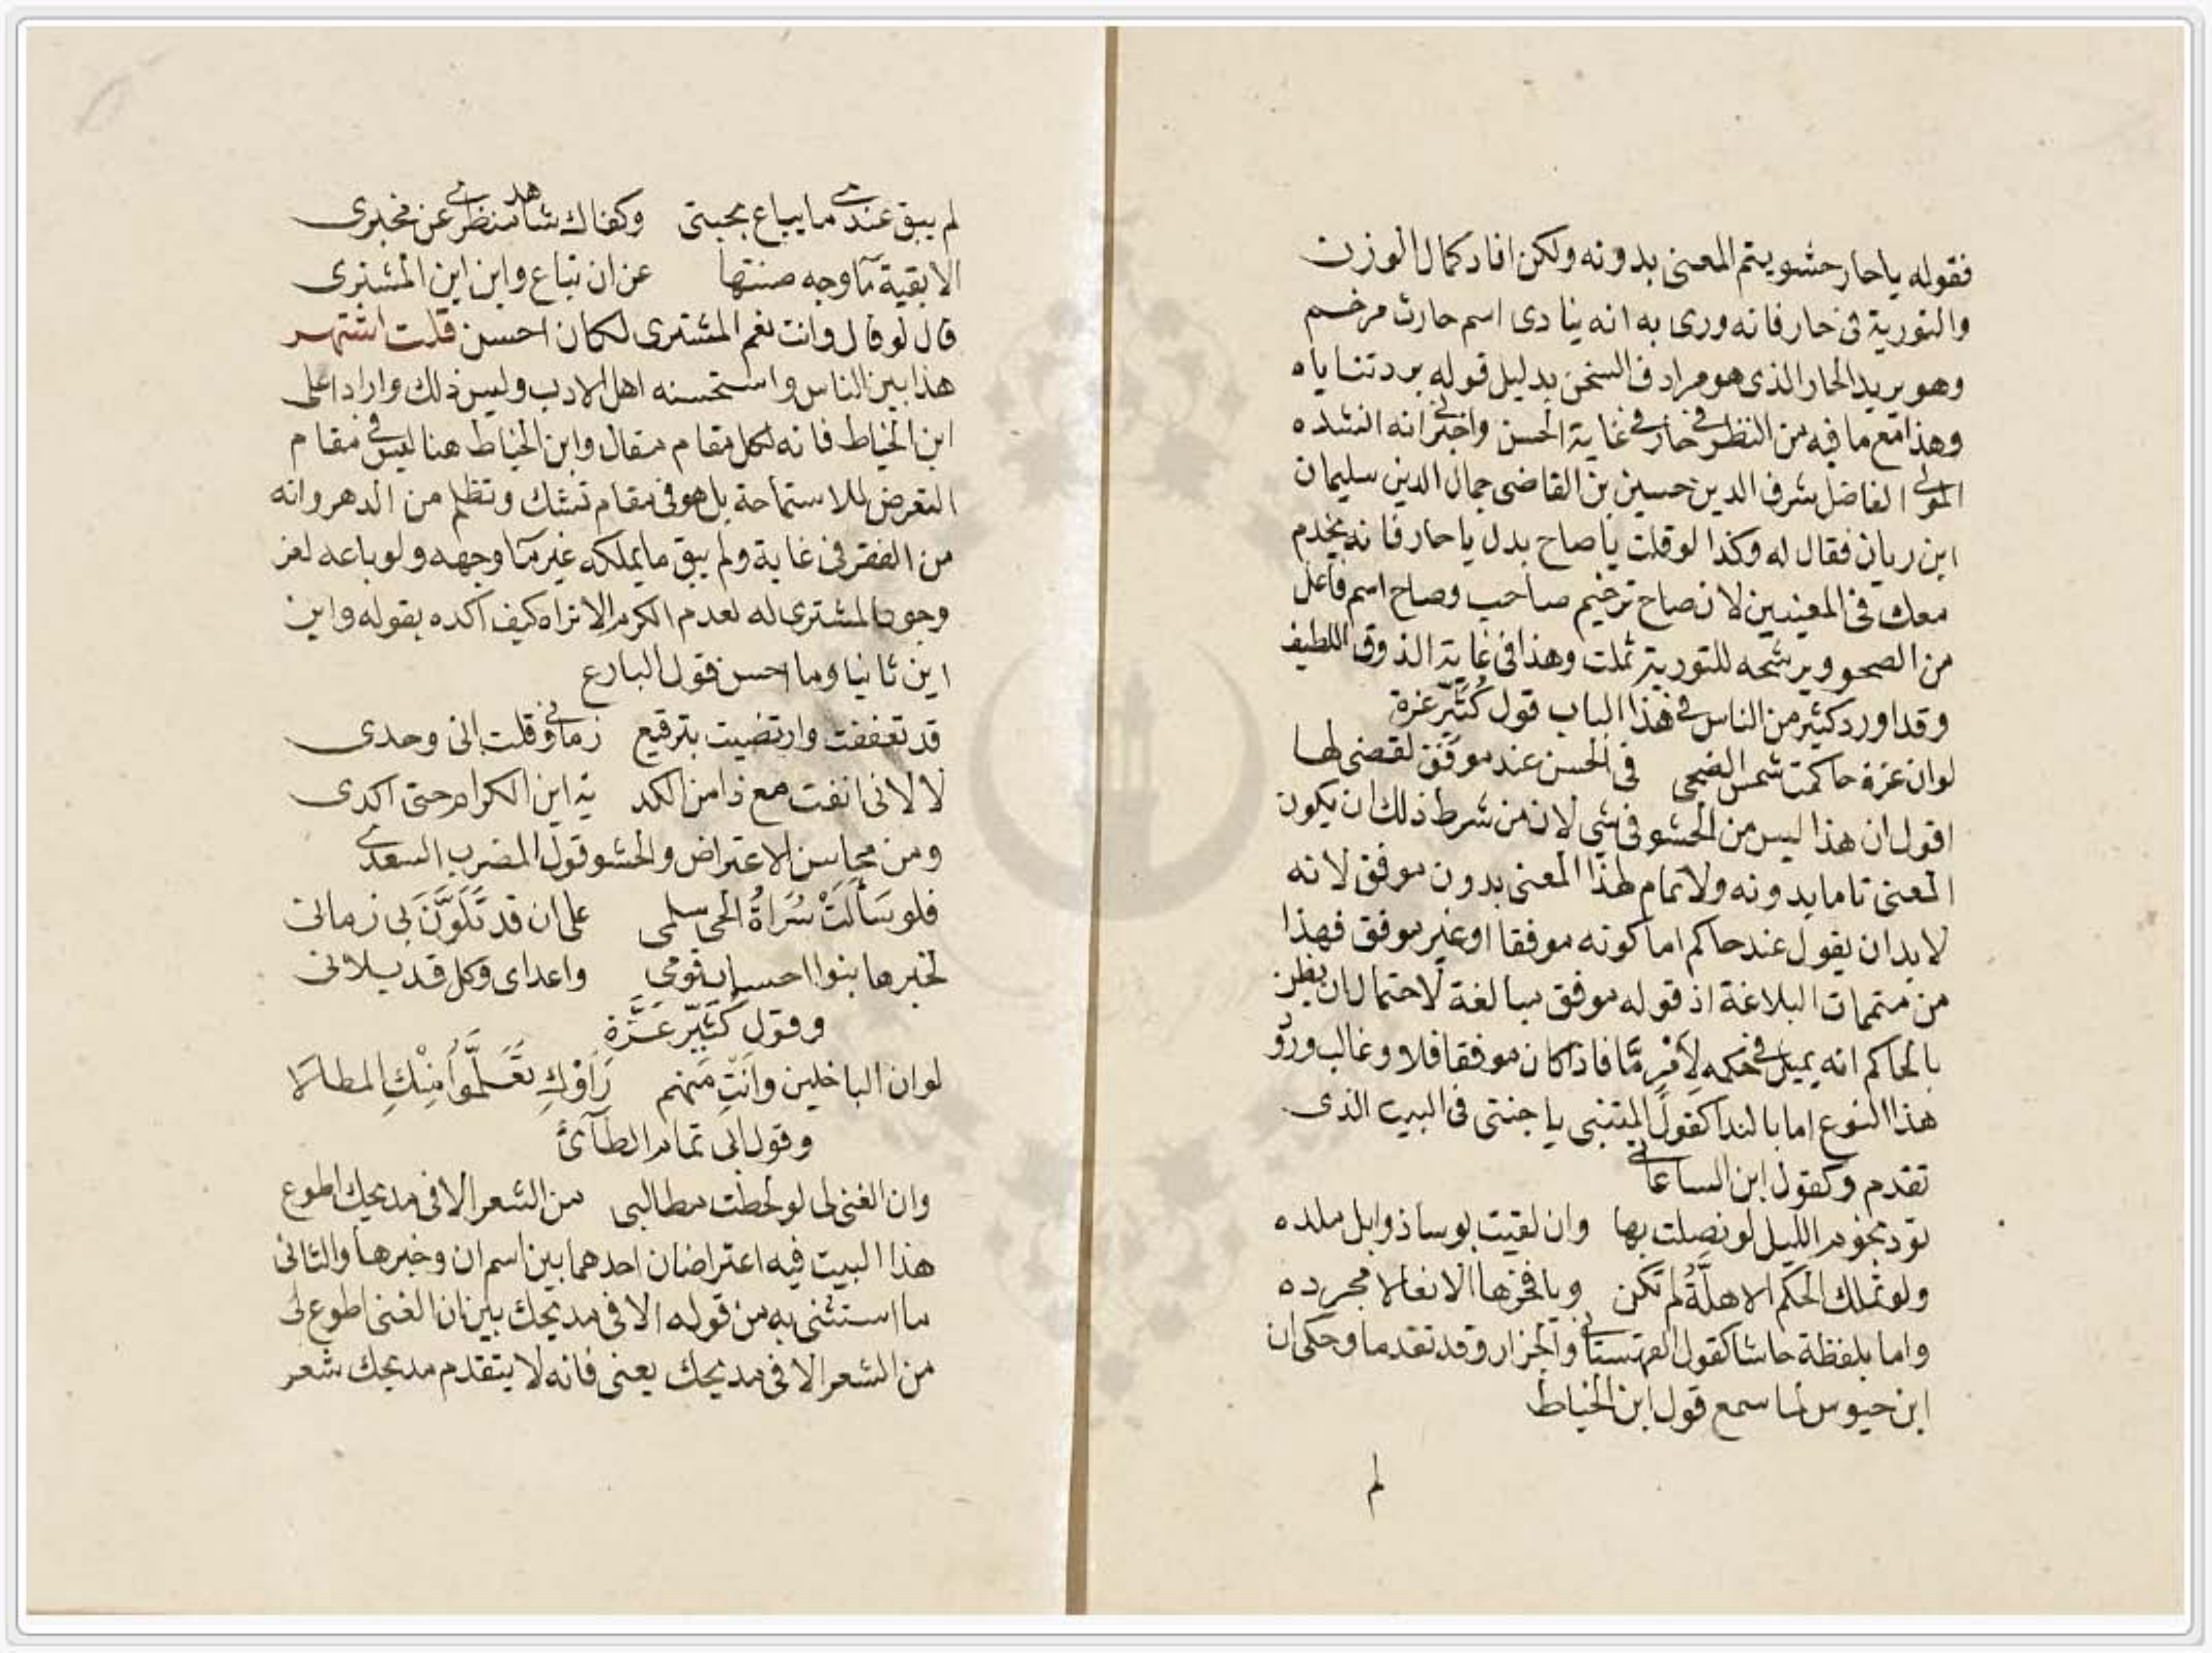 فقوله ياحار حشو يتم المعنى بدونه ولكن افاد كمال الوزن
والتورية فى حار فانه ورى به انه ينادى اسم حارث مرخم
وهو يريد الحار الذى هو مرادف السخن بدليل قوله بردتناياه
وهذا مع ما فيه من النظر فى حار فى غاية الحسن واخبرنى انه انشده
المولى الفاضل شرف الدين حسين بن القاضى جمال الدين سليمان
ابن ريان فقال له وكذا لو قلت ياصاح بدل ياحار فانه يخدم
معك فى المعنيين لان صاح ترخيم صاحب وصاح اسم فاعل
من الصحو ويرشحه للتورية ثملت وهذا فى غاية الذوق اللطيف
وقد اورد كثير من الناس فى هذا الباب قول كُثَيّر عزة
لو ان عزة حاكمت شمس الضحى فى الحسن عند موفق لقضى لها
اقول ان هذا ليس من الحشو فى شى لان من شرط ذلك ان يكون
المعنى تاما بدونه ولا تمام لهذا المعنى بدون موفق لانه
لا بد ان يقول عند حاكم اما كونه موفقا او غير موفق فهذا
من متممات البلاغة اذ قوله موفق مبالغة لاحتمال ان يظن
بالحاكم انه يميل فى حكمه لامر مّا فاذا كان موفقا فلا وغالب ورود
هذا النوع اما بالندا كقول المتنبى يا جنتى فى البيت الذى
تقدم وكقول ابن الساعاتى
تود نجوم الليل لو نصلت بها وان لقيت بوسا ذوابل ملده
ولو تملك الحكم الاهلَّةُ لم تكن ويا فخرها الا نعالا مجرده
واما بلفظة حاشا كقول القهستانى والجزار وقد تقدما وحكى ان
ابن حيوس لما سمع قول ابن الخياط
لم
لم يبق عندى ما يباع بحبتى وكفاك شاهد منظرى عن مخبرى
الا بقية ما وجه صنتها عن ان تباع واين اين المشترى
قال لو قال وانت نعم المشترى لكان احسن قلت اشتهر
هذا بين الناس واستحسنه اهل الادب وليس ذلك وارادا على
ابن الخياط فانه لكل مقام مقال وابن الخياط هنا ليس فى مقام
التعرض للاستماحة بل هو فى مقام تشك وتظلم من الدهر وانه
من الفقر فى غاية ولم يبق ما يملكه غير ما وجهه ولو باعه لعز
وجود المشترى له لعدم الكرم الا تراه كيف اكده بقوله واين
اين ثانيا وما احسن قول البارع
قد تعففت وارتضيت بترقيع زمانى وقلت انى وحدى
لا لانى انفت مع ذا من الكد ية اين الكرام حتى اكدى
ومن محاسن الاعتراض والحشو قول المضرب السعدى
فلو سَأَلَتْ سُرَاةُ الحى سلمى على ان قد تَلَوَّنَ بى زمانى
لخبرها بنوا احساب قومى واعداى وكل قد بلانى
وقول كُثَيّر عَزَّة
لو ان الباخلين وانتِ منهم رَاَوْكِ تَعَلَّمُوا مِنْكِ المطالا
وقول ابى تمام الطآئى
وان الغنى لى لو لحظت مطالبى من الشعر الا فى مديحك اطوع
هذا البيت فيه اعتراضان احدهما بين اسم ان وخبرها والثانى
ما استثنى به من قوله الا فى مديحك بين ان الغنى اطوع لى
من الشعر الا فى مديحك يعنى فانه لا يتقدم مديحك شعر